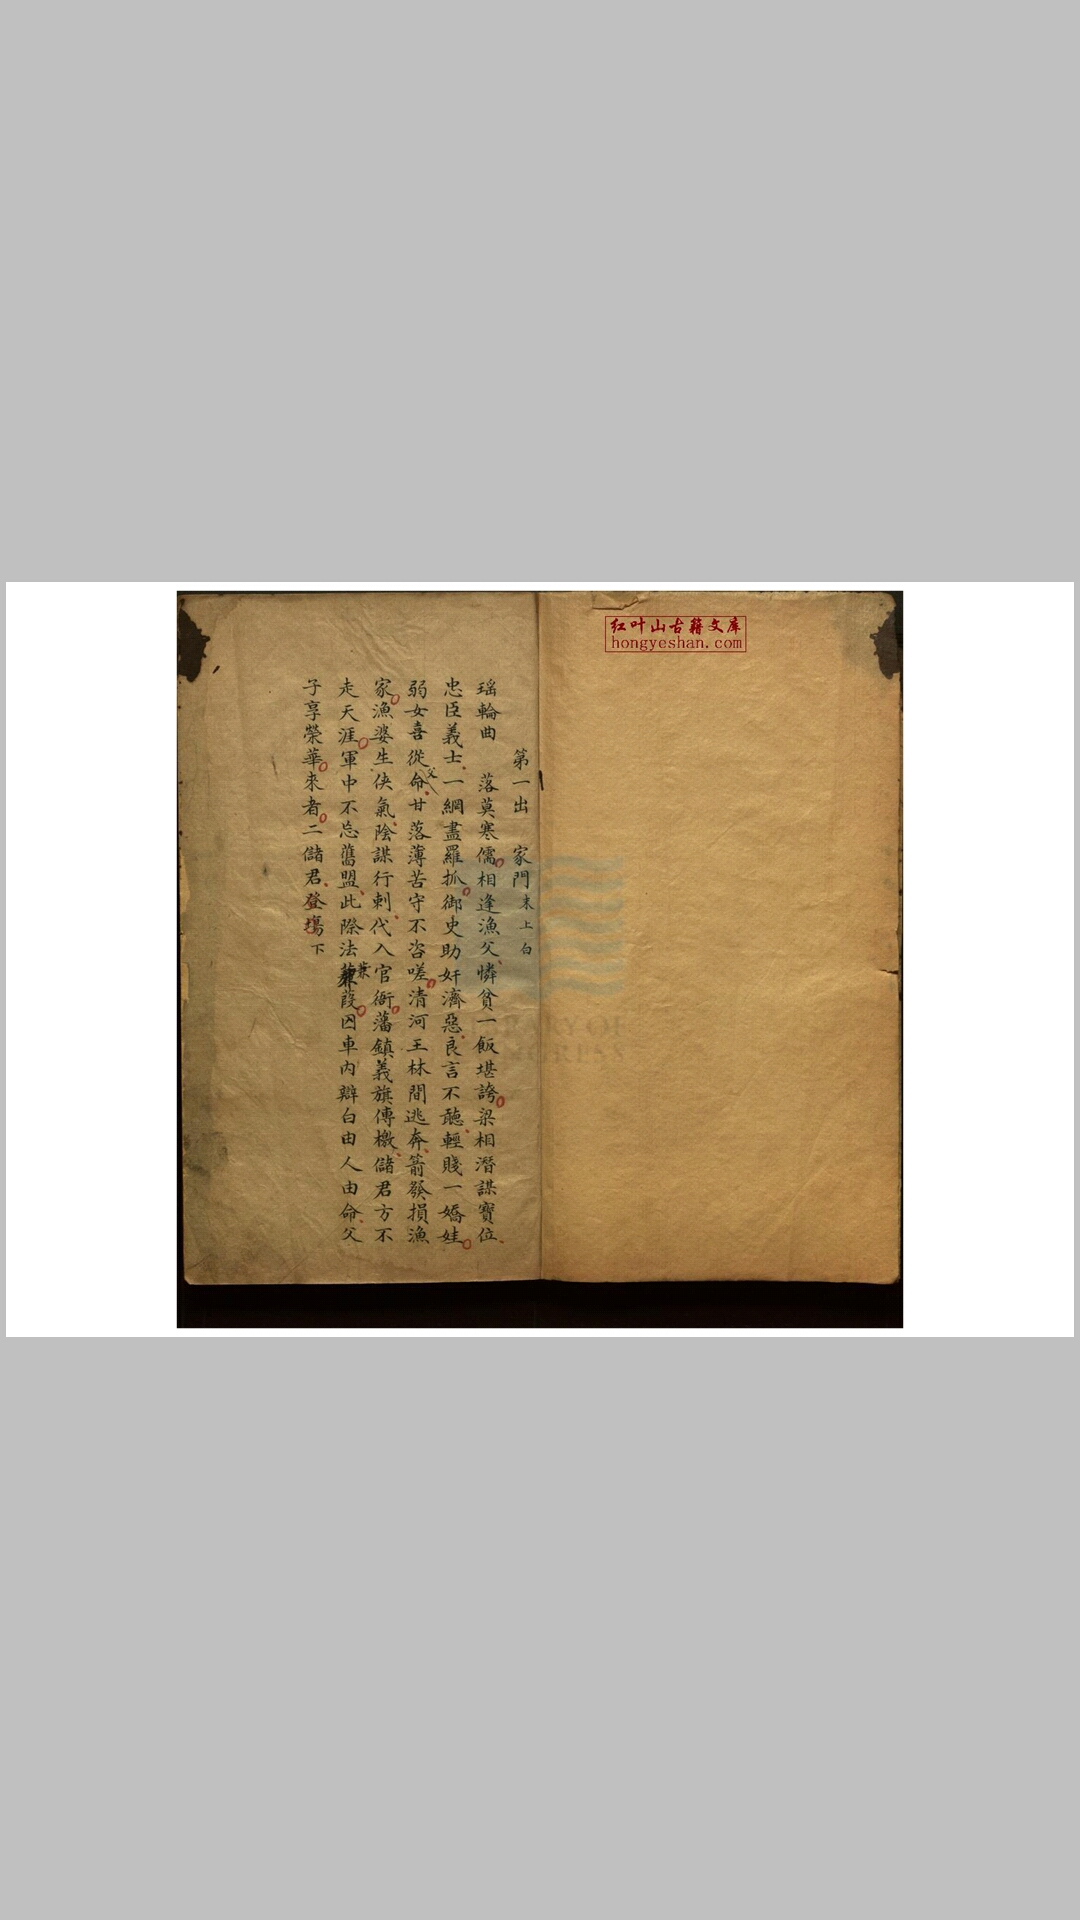 红叶山古籍文库
hongyeshan.com
第一出 家門 末上白
瑶輪曲 落莫寒儒相逢漁父憐貧一飯堪誇梁相潛謀寶位
忠臣義士一網盡羅抓御史助奸濟惡良言不聽輕賤一嬌娃
弱女喜從父命甘落薄苦守不咨嗟清河王林間逃奔箭發損漁
家漁婆生俠氣陰謀行刺代入官衙藩鎮義旗傳檄儲君方不
走天涯軍中不忘舊盟此際法蒹葭囚車內辯白由人由命父
子享榮華來者二儲君登場下